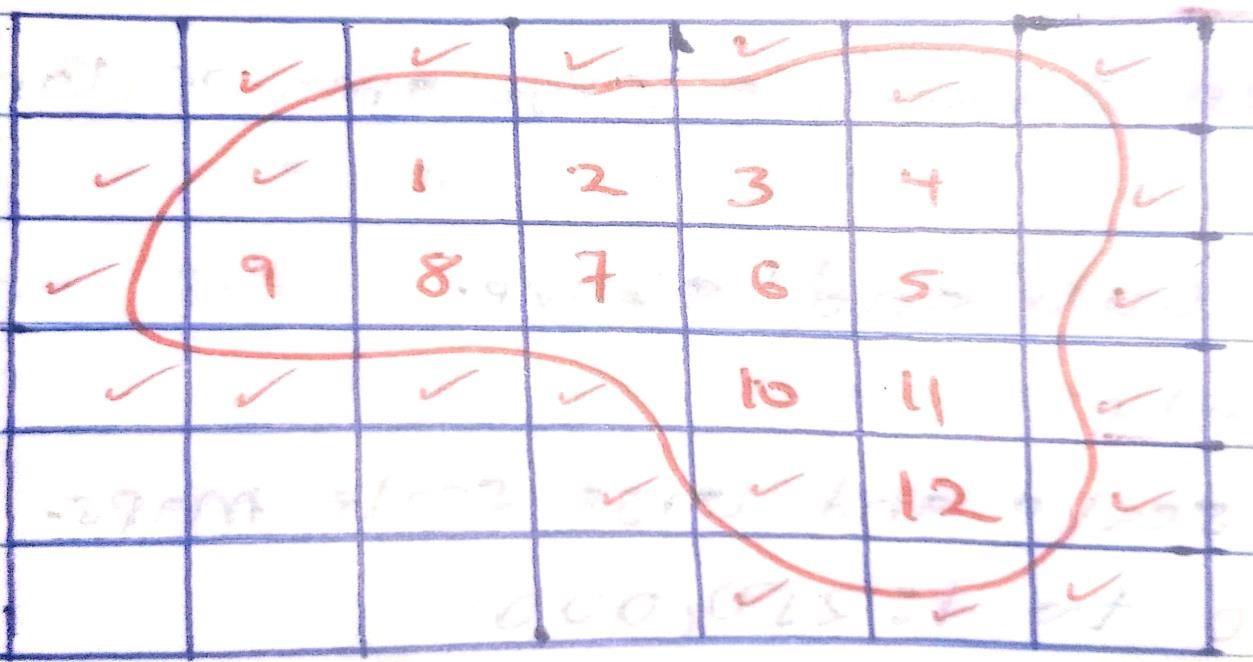 ✓ ✓ ✓ ✓ ✓ ✓
✓ ✓ 1 2 3 4 ✓
✓ 9 8 7 6 5 ✓
✓ ✓ ✓ ✓ 10 11 ✓
✓ ✓ 12 ✓
✓ ✓ ✓